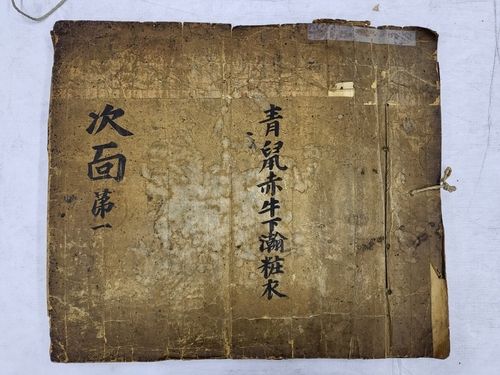 青鼠赤牛下瀚粧衣
次靣 第一